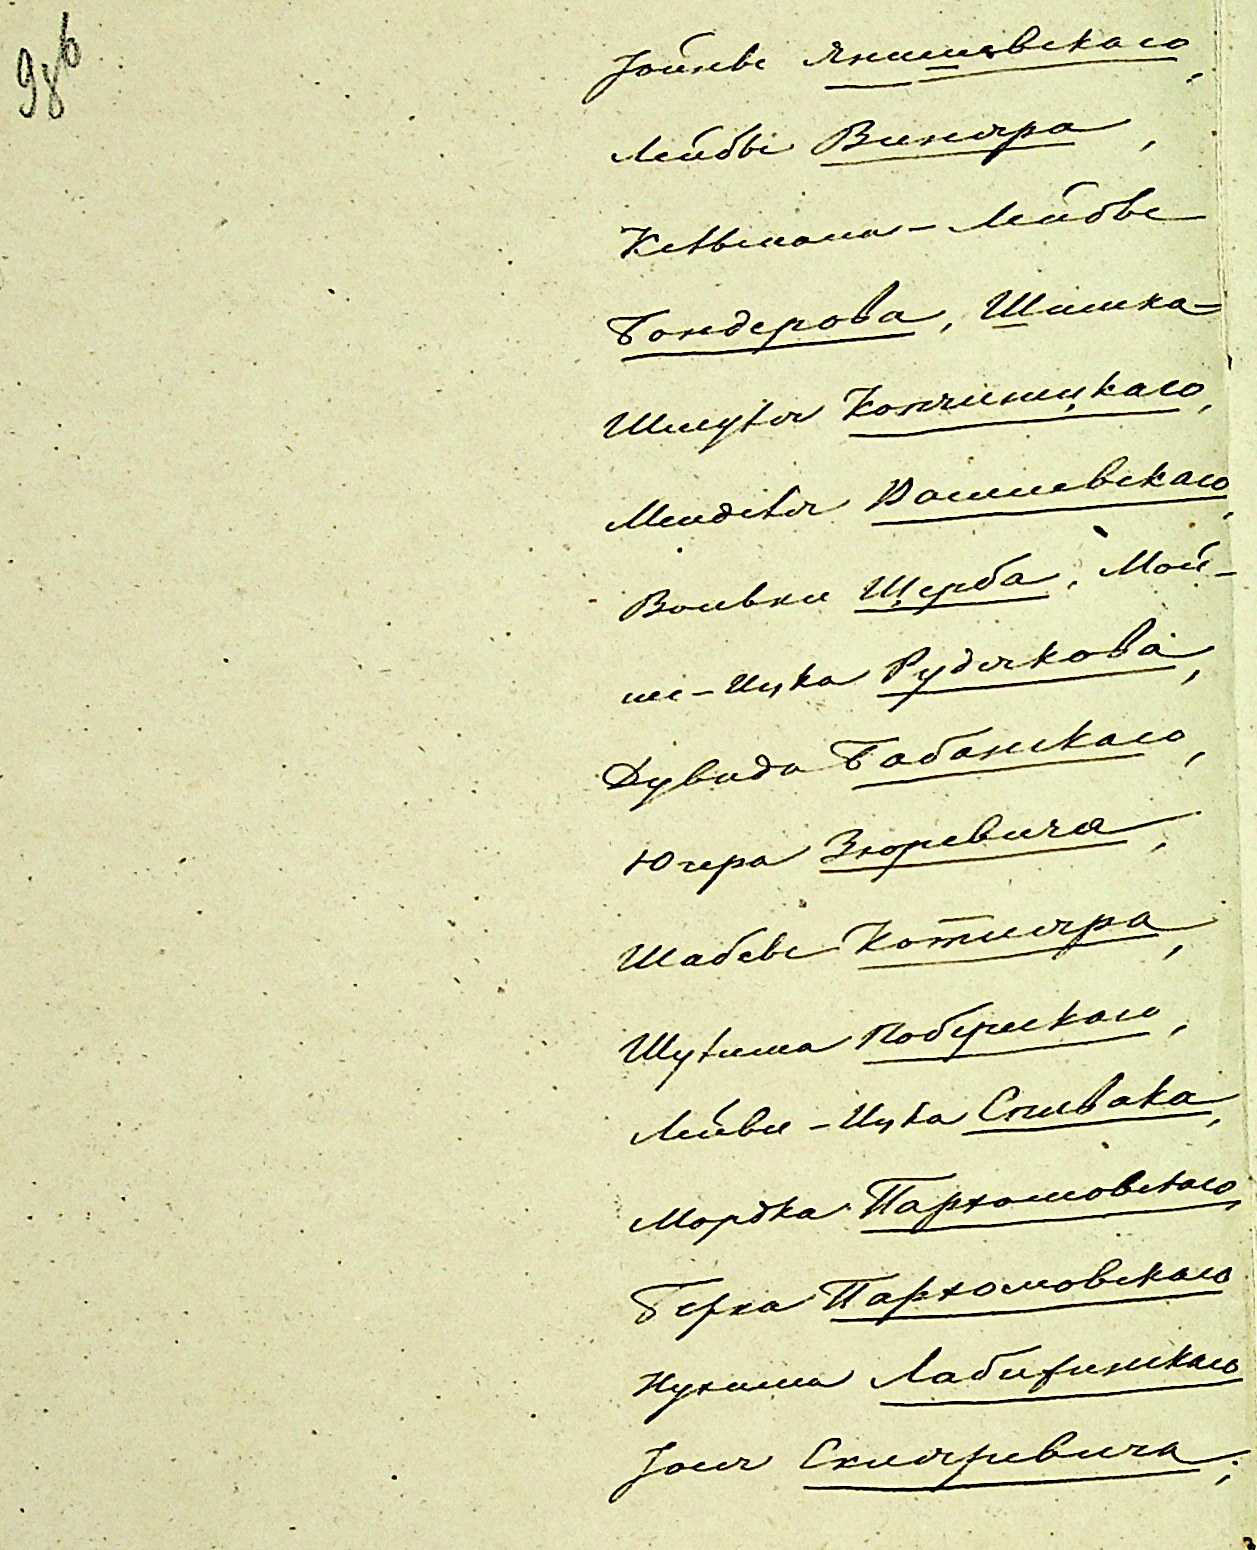 98б
Іойнвс Янишевскаго,
Лейбы Винара,
Кельмана - Лейбы
Бондерова, Шимка-
Шмуля Копчинецкаго,
Менделя Дашевскаго,
Волвки Щерба, Мой-
ше-Ицка Рудякова,
Дувида Бабанскаго,
Юхера Зюревича,
Шабсы Котляра,
Шулима Поберскаго,
Лейви - Ицка Спивака,
Мордка Пархомовскаго,
Берка Пархомовскаго
Нухима Лабужинскаго
Іося Скляревича,